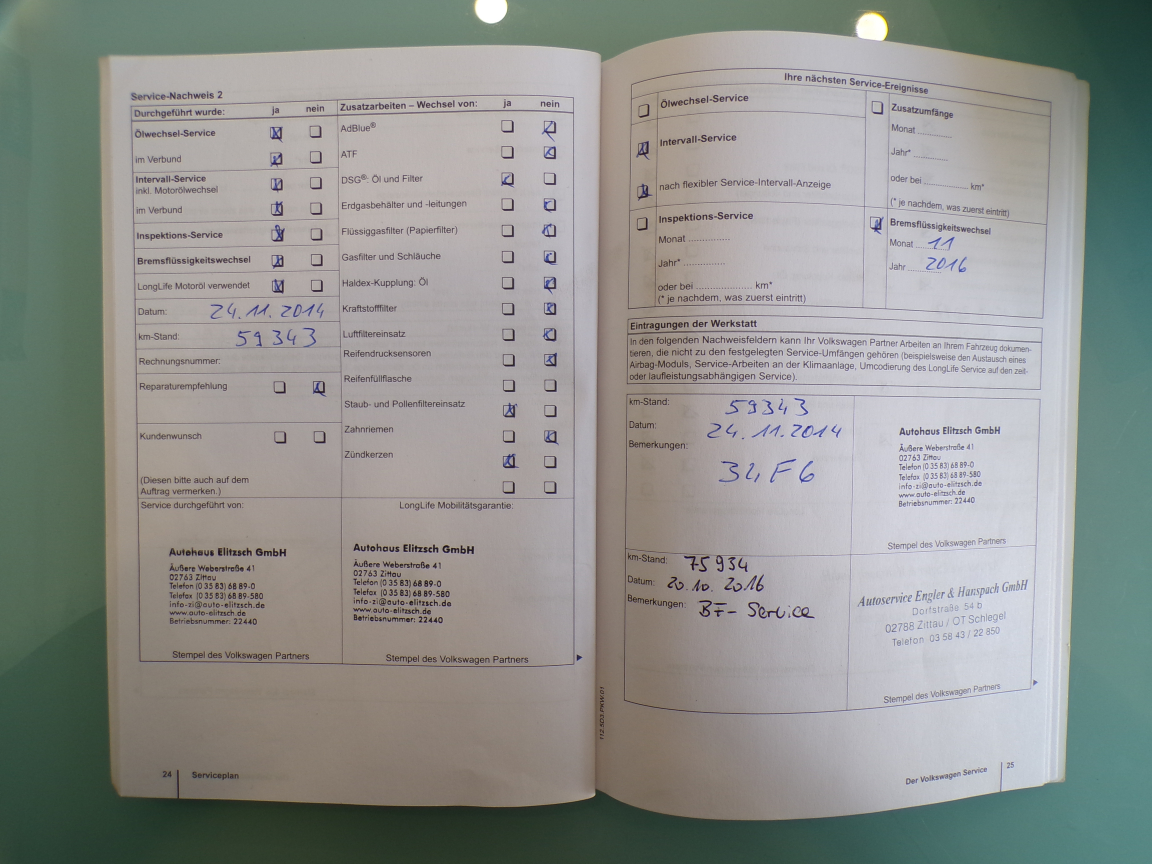 Service-Nachweis 2
Durchgeführt wurde: ja nein
Ölwechsel-Service
im Verbund
Intervall-Service
inkl. Motorölwechsel
im Verbund
Inspektions-Service
Bremsflüssigkeitswechsel
LongLife Motoröl verwendet
Datum: 24.11.2014
km-Stand: 59343
Rechnungsnummer:
Reparaturempfehlung
Kundenwunsch
(Diesen bitte auch auf dem
Auftrag vermerken.)
Zusatzarbeiten – Wechsel von: ja nein
AdBlue®
ATF
DSG®: Öl und Filter
Erdgasbehälter und -leitungen
Flüssiggasfilter (Papierfilter)
Gasfilter und Schläuche
Haldex-Kupplung: Öl
Kraftstofffilter
Luftfiltereinsatz
Reifendrucksensoren
Reifenfüllflasche
Staub- und Pollenfiltereinsatz
Zahnriemen
Zündkerzen
Service durchgeführt von:
Autohaus Elitzsch GmbH
Äußere Weberstraße 41
02763 Zittau
Telefon (0 35 83) 68 89-0
Telefax (0 35 83) 68 89-580
info-zi@auto-elitzsch.de
www.auto-elitzsch.de
Betriebsnummer: 22440
Stempel des Volkswagen Partners
LongLife Mobilitätsgarantie:
Autohaus Elitzsch GmbH
Äußere Weberstraße 41
02763 Zittau
Telefon (0 35 83) 68 89-0
Telefax (0 35 83) 68 89-580
info-zi@auto-elitzsch.de
www.auto-elitzsch.de
Betriebsnummer: 22440
Stempel des Volkswagen Partners
24 Serviceplan
Ihre nächsten Service-Ereignisse
Ölwechsel-Service
Intervall-Service
nach flexibler Service-Intervall-Anzeige
Inspektions-Service
Monat ..............
Jahr* ..............
oder bei .................... km*
(* je nachdem, was zuerst eintritt)
Zusatzumfänge
Monat ............
Jahr* ............
oder bei ............... km*
(* je nachdem, was zuerst eintritt)
Bremsflüssigkeitswechsel
Monat 11
Jahr 2016
Eintragungen der Werkstatt
In den folgenden Nachweisfeldern kann Ihr Volkswagen Partner Arbeiten an Ihrem Fahrzeug dokumen-
tieren, die nicht zu den festgelegten Service-Umfängen gehören (beispielsweise den Austausch eines
Airbag-Moduls, Service-Arbeiten an der Klimaanlage, Umcodierung des LongLife Service auf den zeit-
oder laufleistungsabhängigen Service).
km-Stand: 59343
Datum: 24.11.2014
Bemerkungen:
34F6
Autohaus Elitzsch GmbH
Äußere Weberstraße 41
02763 Zittau
Telefon (0 35 83) 68 89-0
Telefax (0 35 83) 68 89-580
info-zi@auto-elitzsch.de
www.auto-elitzsch.de
Betriebsnummer: 22440
Stempel des Volkswagen Partners
km-Stand: 75934
Datum: 20.10.2016
Bemerkungen: BF- Service
Autoservice Engler & Hanspach GmbH
Dorfstraße 54 b
02788 Zittau / OT Schlegel
Telefon 03 58 43 / 22 850
Stempel des Volkswagen Partners
112.5D3.PKW.01
Der Volkswagen Service 25